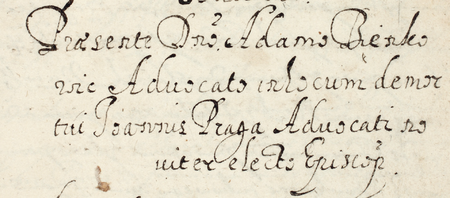 Præsente Dnō. Adamo Bienko
wic Advocato in locum demor
tui Joannis Praga Advocati no
viter electo Episcop̄.